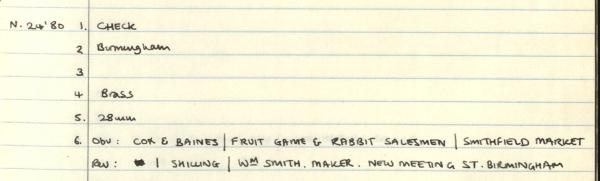 N. 24'80 1. CHECK
2 Birmingham
3
4 Brass
5. 28mm
6. Obv: COX & BAINES | FRUIT GAME & RABBIT SALESMEN | SMITHFIELD MARKET
Rev: 1 SHILLING | WM SMITH. MAKER. NEW MEETING ST. BIRMINGHAM